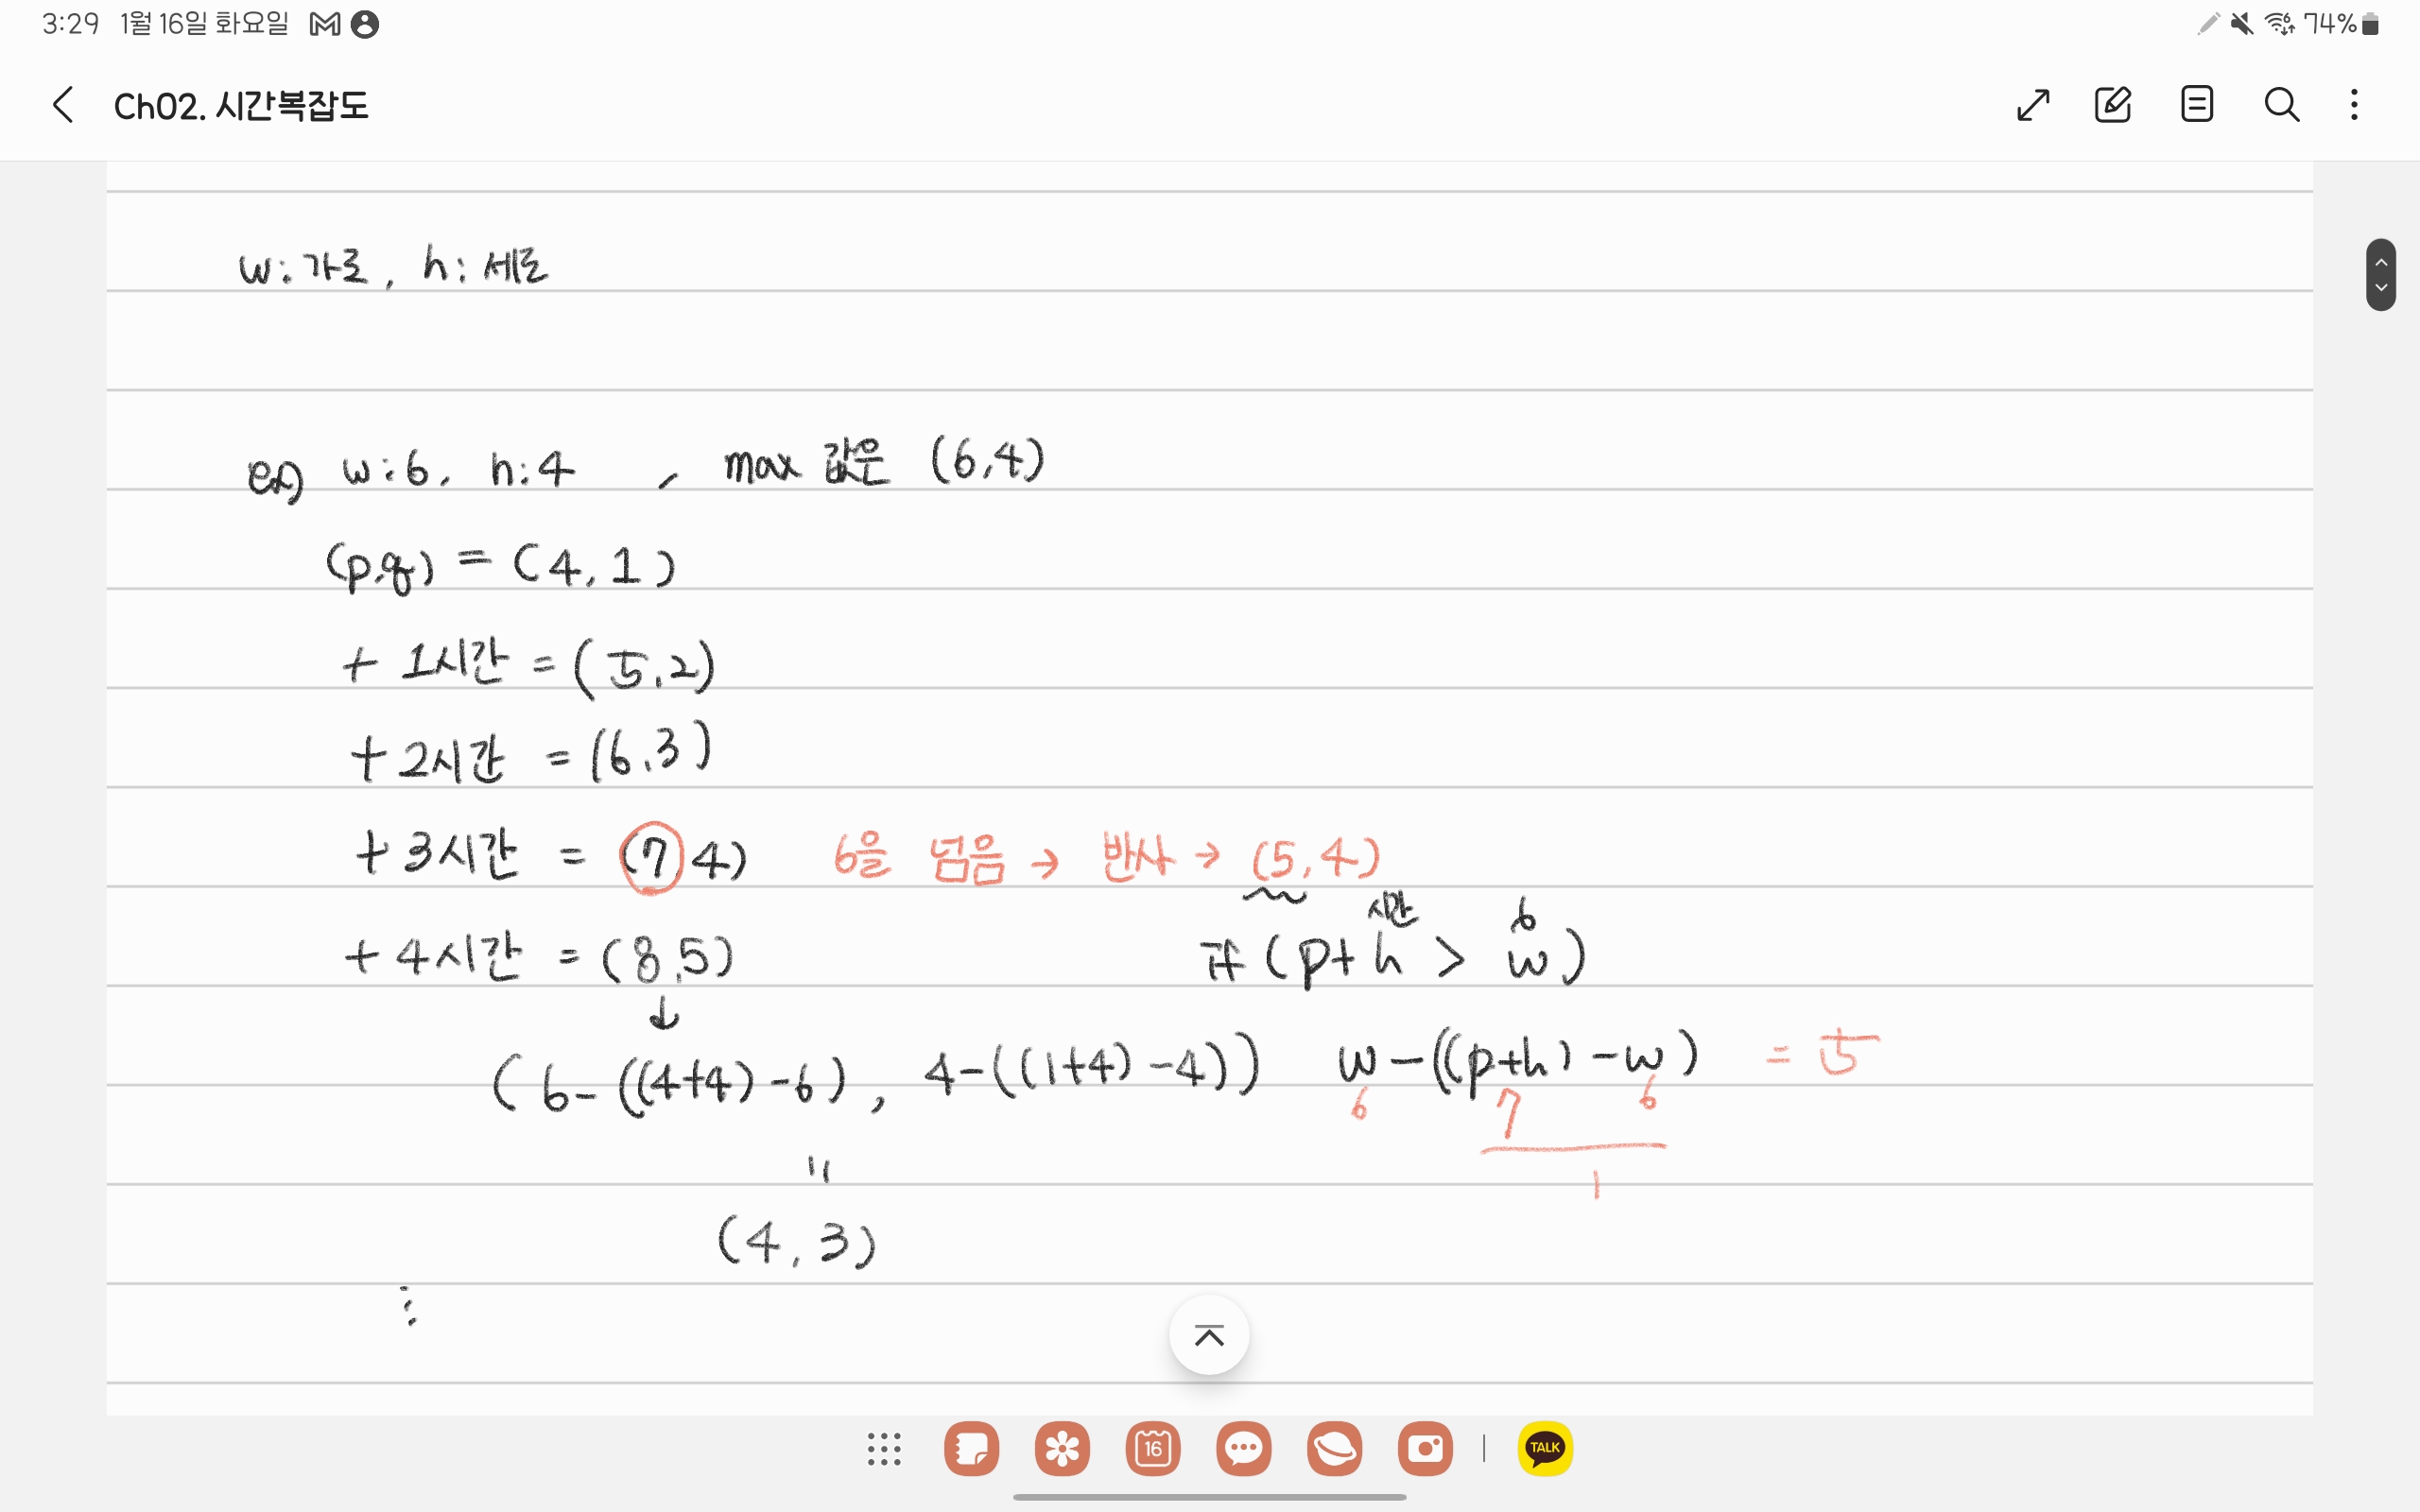 3:29 1월 16일 화요일 74%
Ch02. 시간복잡도
w: 가로, h: 세로
ex) w:6, h:4 , max 값은 (6,4)
(p,q) = (4,1)
+ 1시간 = (5,2)
+ 2시간 = (6,3)
+ 3시간 = (7,4) 6을 넘음 → 반사 → (5,4)
시간 6
+ 4시간 = (8,5) if (p+h > w)
↓
(6-((4+4)-6), 4-((1+4)-4)) w-((p+h)-w) = 5
6 7 6
"
1
(4,3)
⋮
16
TALK